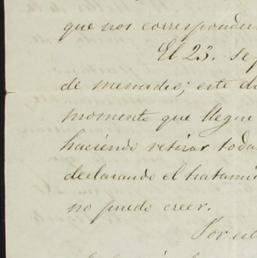 que nos corresponde
El 23. se
de menudio; este d
momento que llegue
haciendo retirar toda
declarando el tratami
no puede creer.
Por es